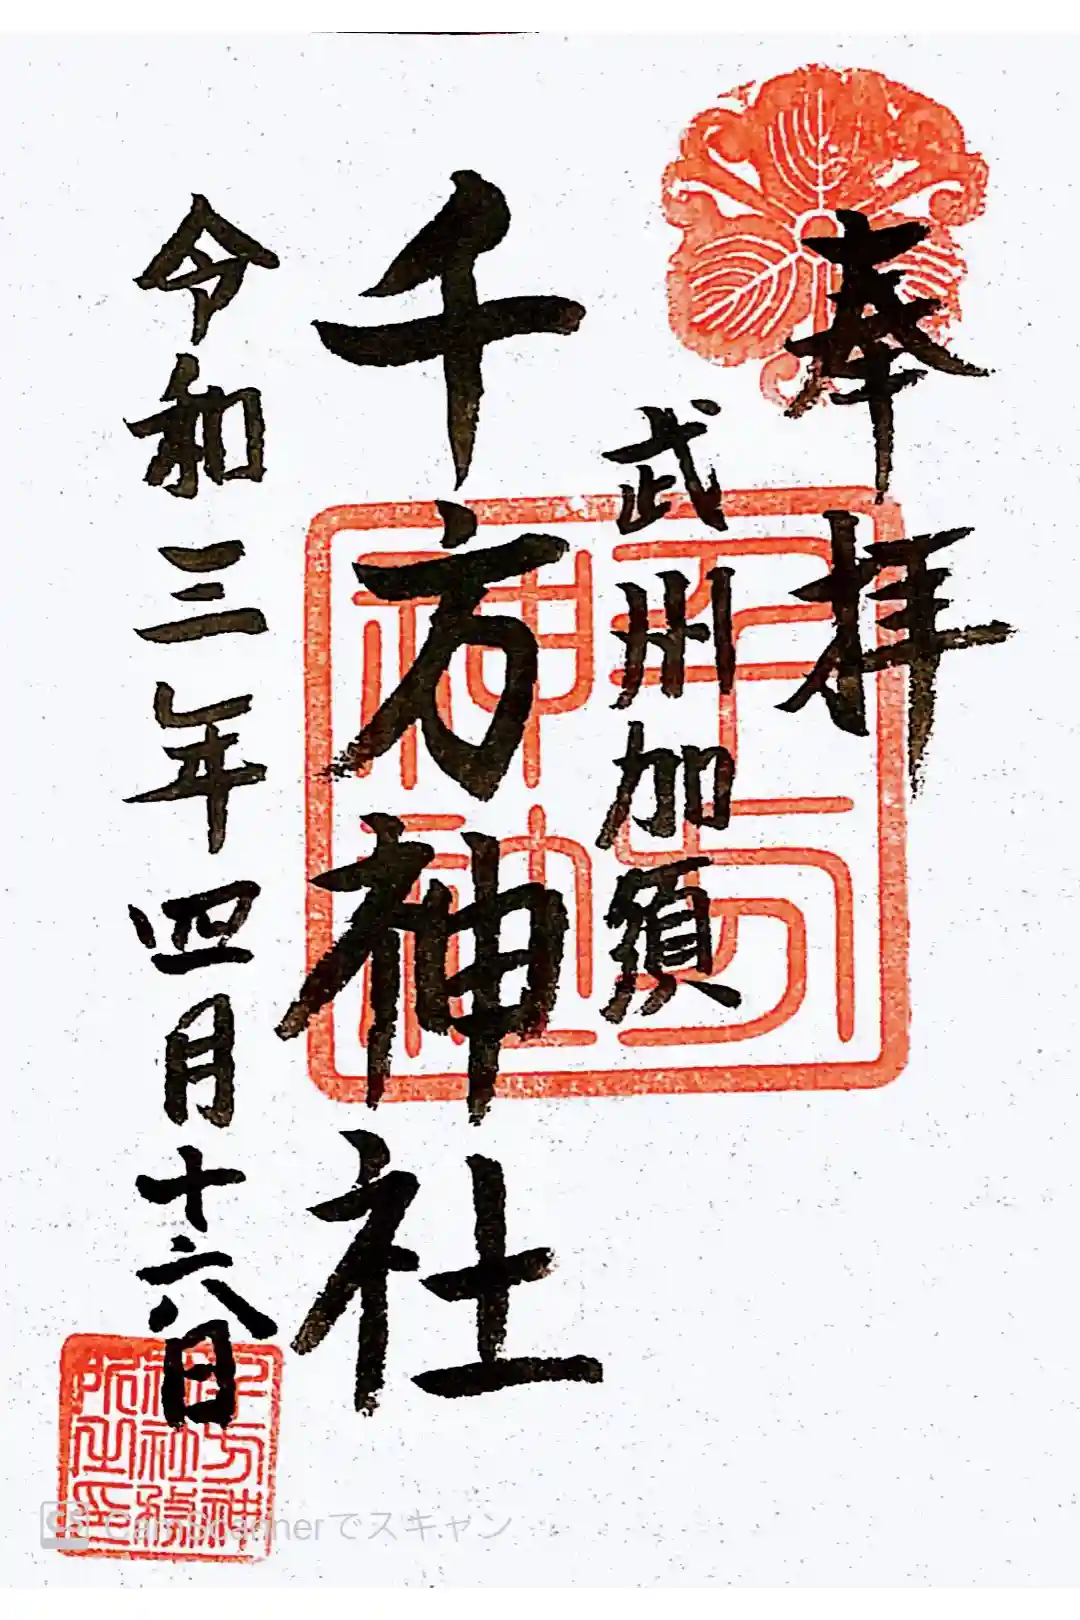 奉拝
武州加須
千方神社
令和三年四月十六日
千方神社
千方神社社務所之印
CS CamScannerでスキャン